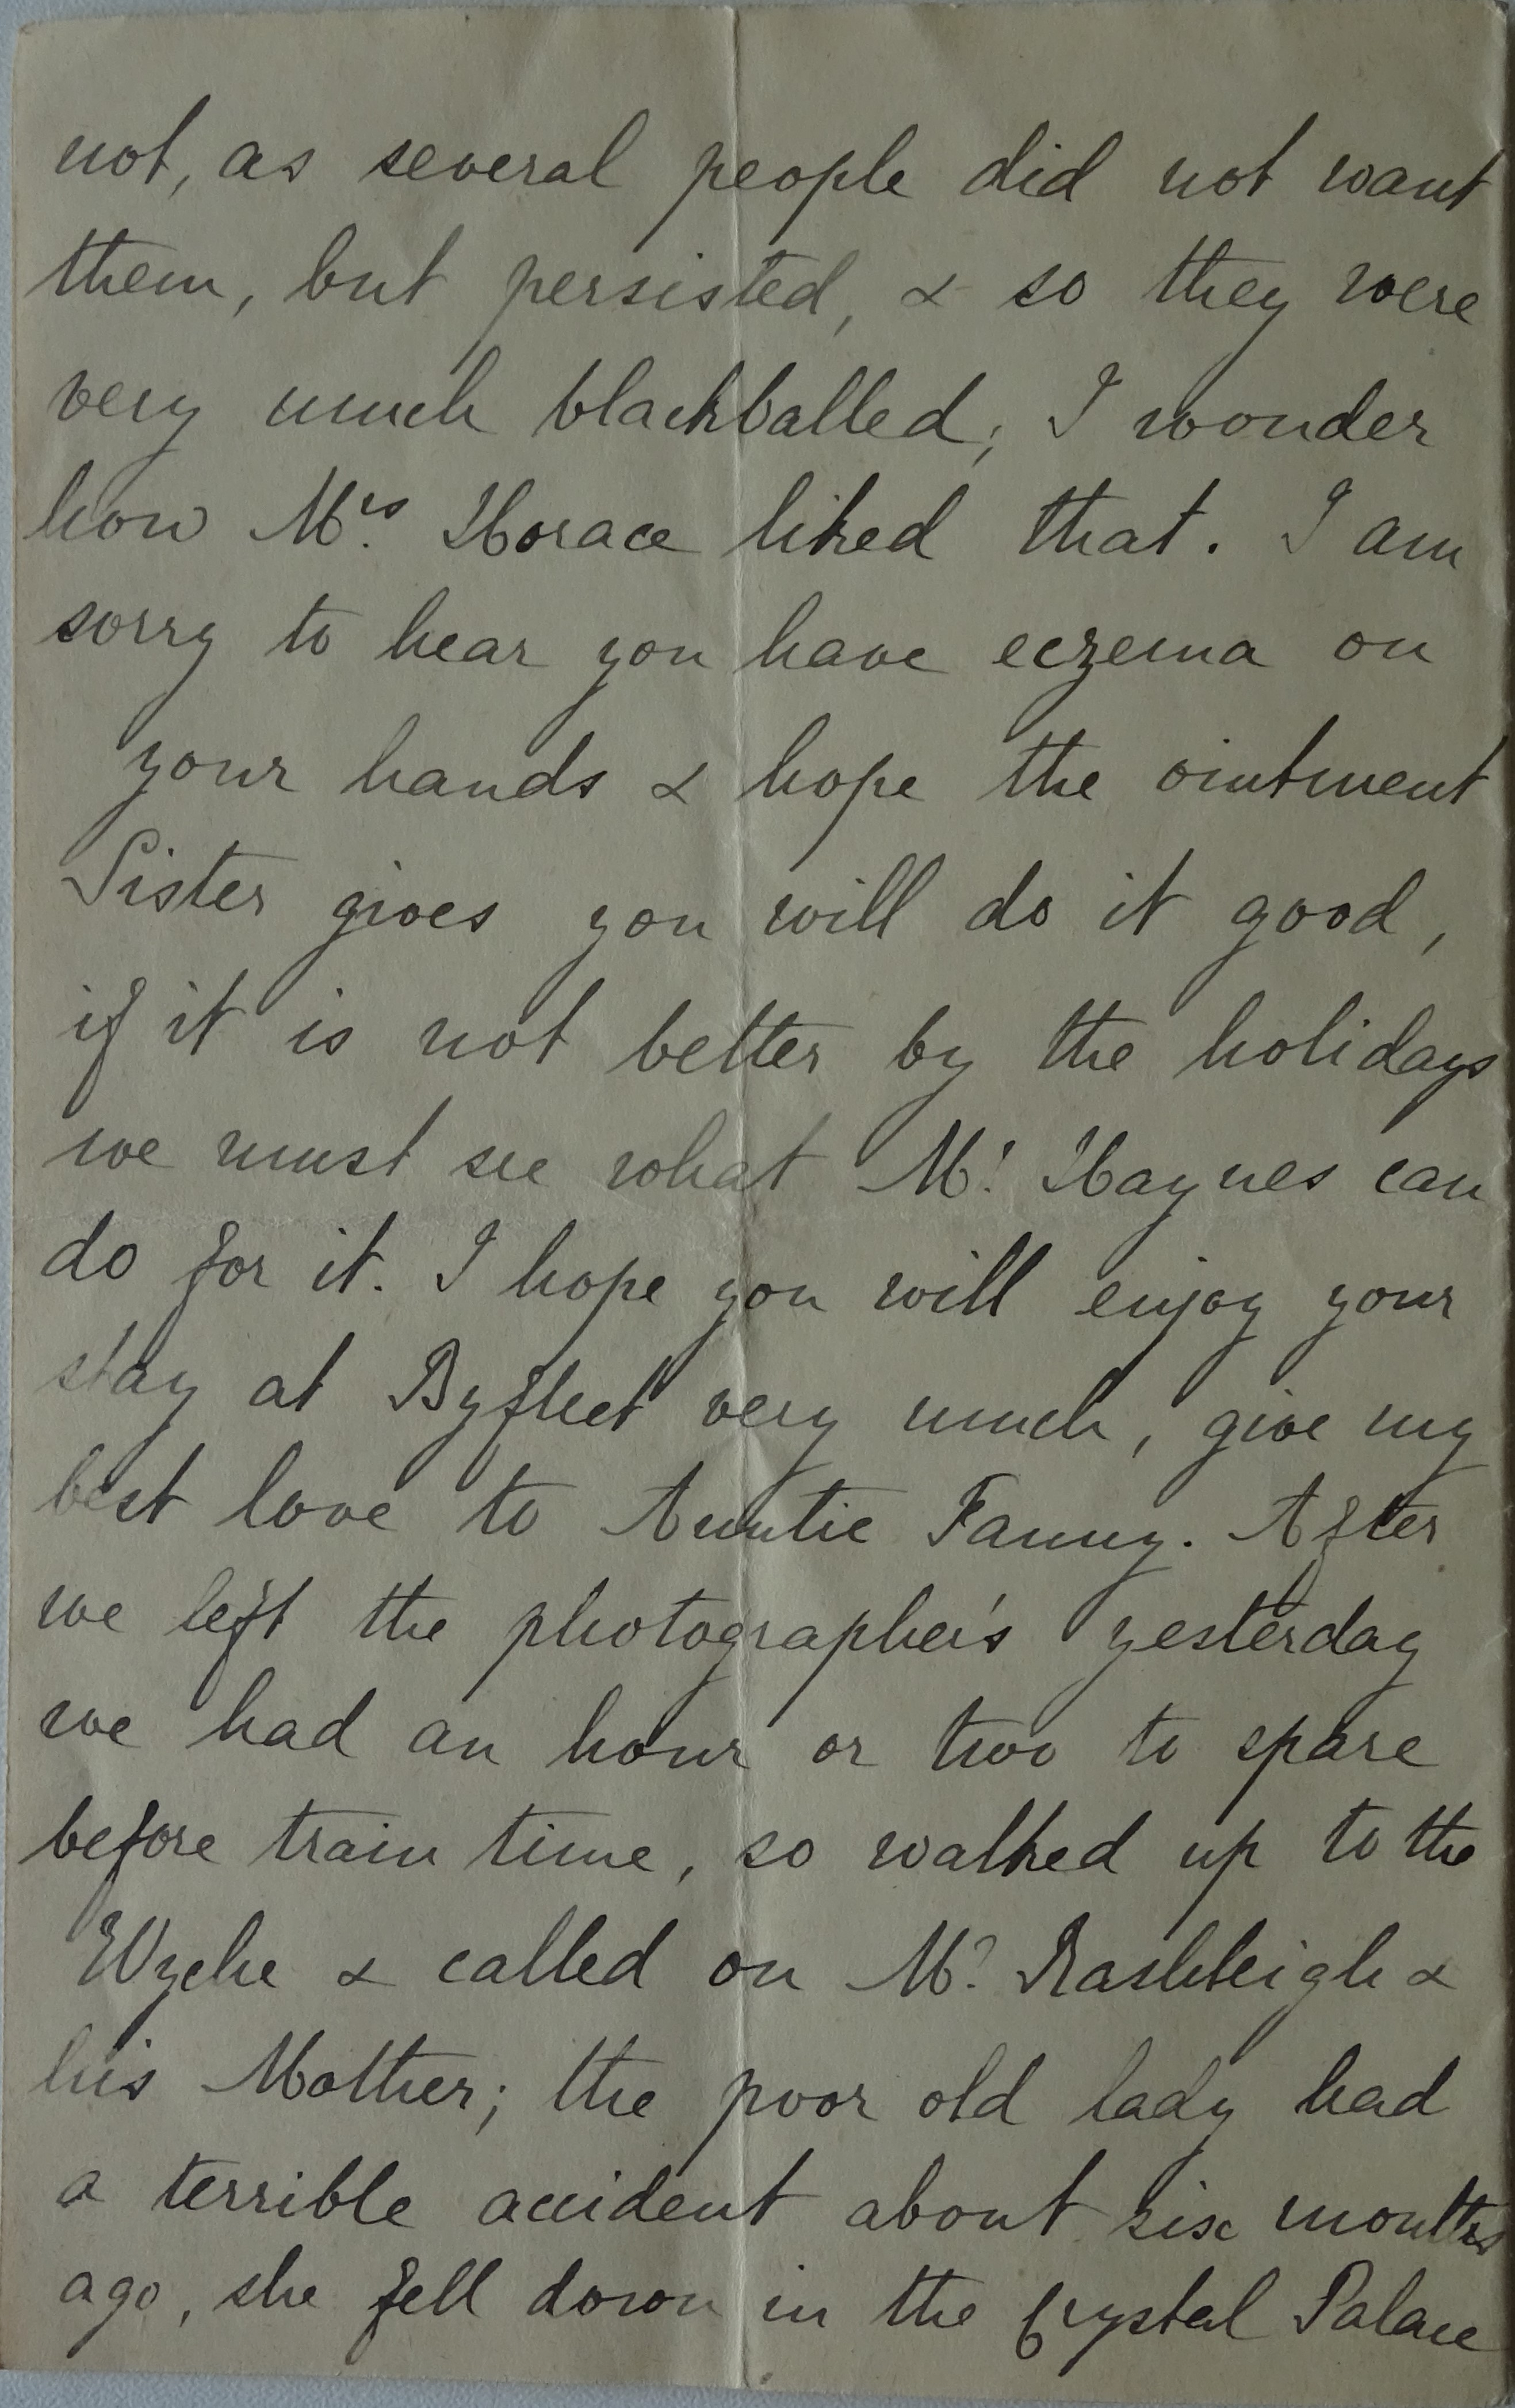 not, as several people did not want
them, but persisted, & so they were
very much blackballed; I wonder
how Mrs. Horace liked that. I am
sorry to hear you have eczema on
your hands & hope the ointment
Sister gives you will do it good,
if it is not better by the holidays
we must see what Mr. Haynes can
do for it. I hope you will enjoy your
stay at Byfleet very much, give my
best love to Auntie Fanny. After
we left the photographer's yesterday
we had an hour or two to spare
before train time, so walked up to the
Wyche & called on Mr. Rashleigh &
his Mother; the poor old lady had
a terrible accident about six months
ago, she fell down in the Crystal Palace